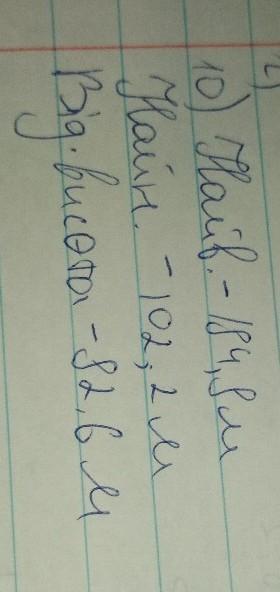 10) Найв. - 184,8 м
Найн. - 102,2 м
Від. висота - 82,6 м